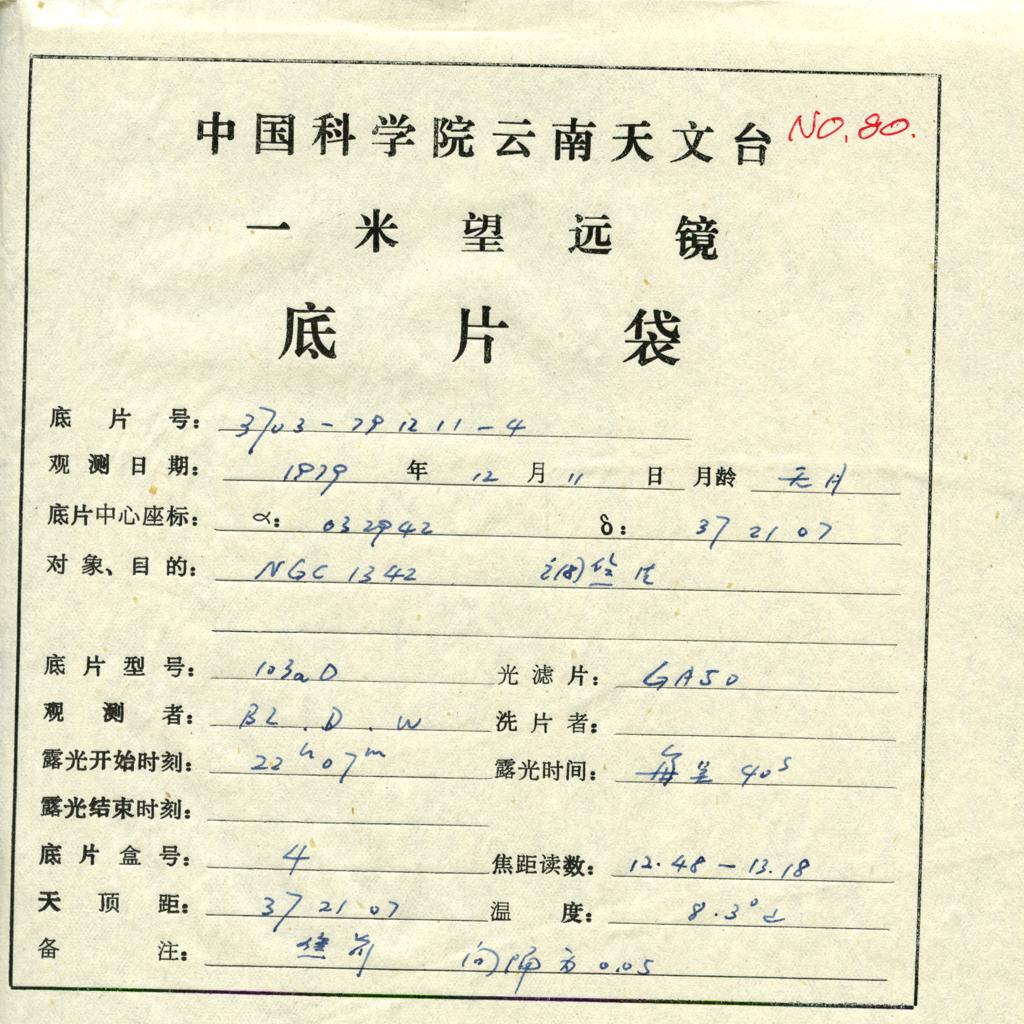 中国科学院云南天文台 NO.80.
一米望远镜
底片袋
底片号： 3703-791211-4
观测日期： 1979 年 12 月 11 日 月龄 无月
底片中心座标： α： 032942 δ： 37 21 07
对象、目的： NGC 1342 调焦片
底片型号： 103aD 光滤片： GA50
观测者： BL. D. W 洗片者：
露光开始时刻： 22h07m 露光时间： 每星 40s
露光结束时刻：
底片盒号： 4 焦距读数： 12.48-13.18
天顶距： 37 21 07 温度： 8.3°
备注： 焦前 间隔为 0.05